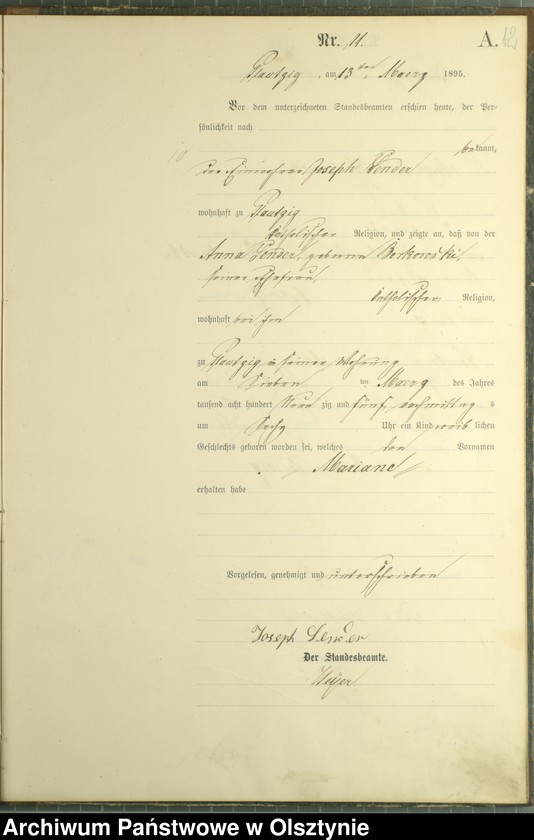 Nr. 11.
A. 12
Plautzig, am 13ten Maerz 1895.
Vor dem unterzeichneten Standesbeamten erschien heute, der Per-
sönlichkeit nach
bekannt,
der Einwohner Joseph Sender
wohnhaft zu Plautzig
katholischer Religion, und zeigte an, daß von der
Anna Sender, geborene Borkowski,
seiner Ehefrau,
katholischer Religion,
wohnhaft bei ihm
zu Plautzig in seiner Wohnung
am sieben ten Maerz des Jahres
tausend acht hundert neun zig und fünf, nachmittag s
um sechs Uhr ein Kind weib lichen
Geschlechts geboren worden sei, welches den Vornamen
Mariane
erhalten habe
Vorgelesen, genehmigt und unterschrieben
Joseph Sender
Der Standesbeamte.
Archiwum Państwowe w Olsztynie